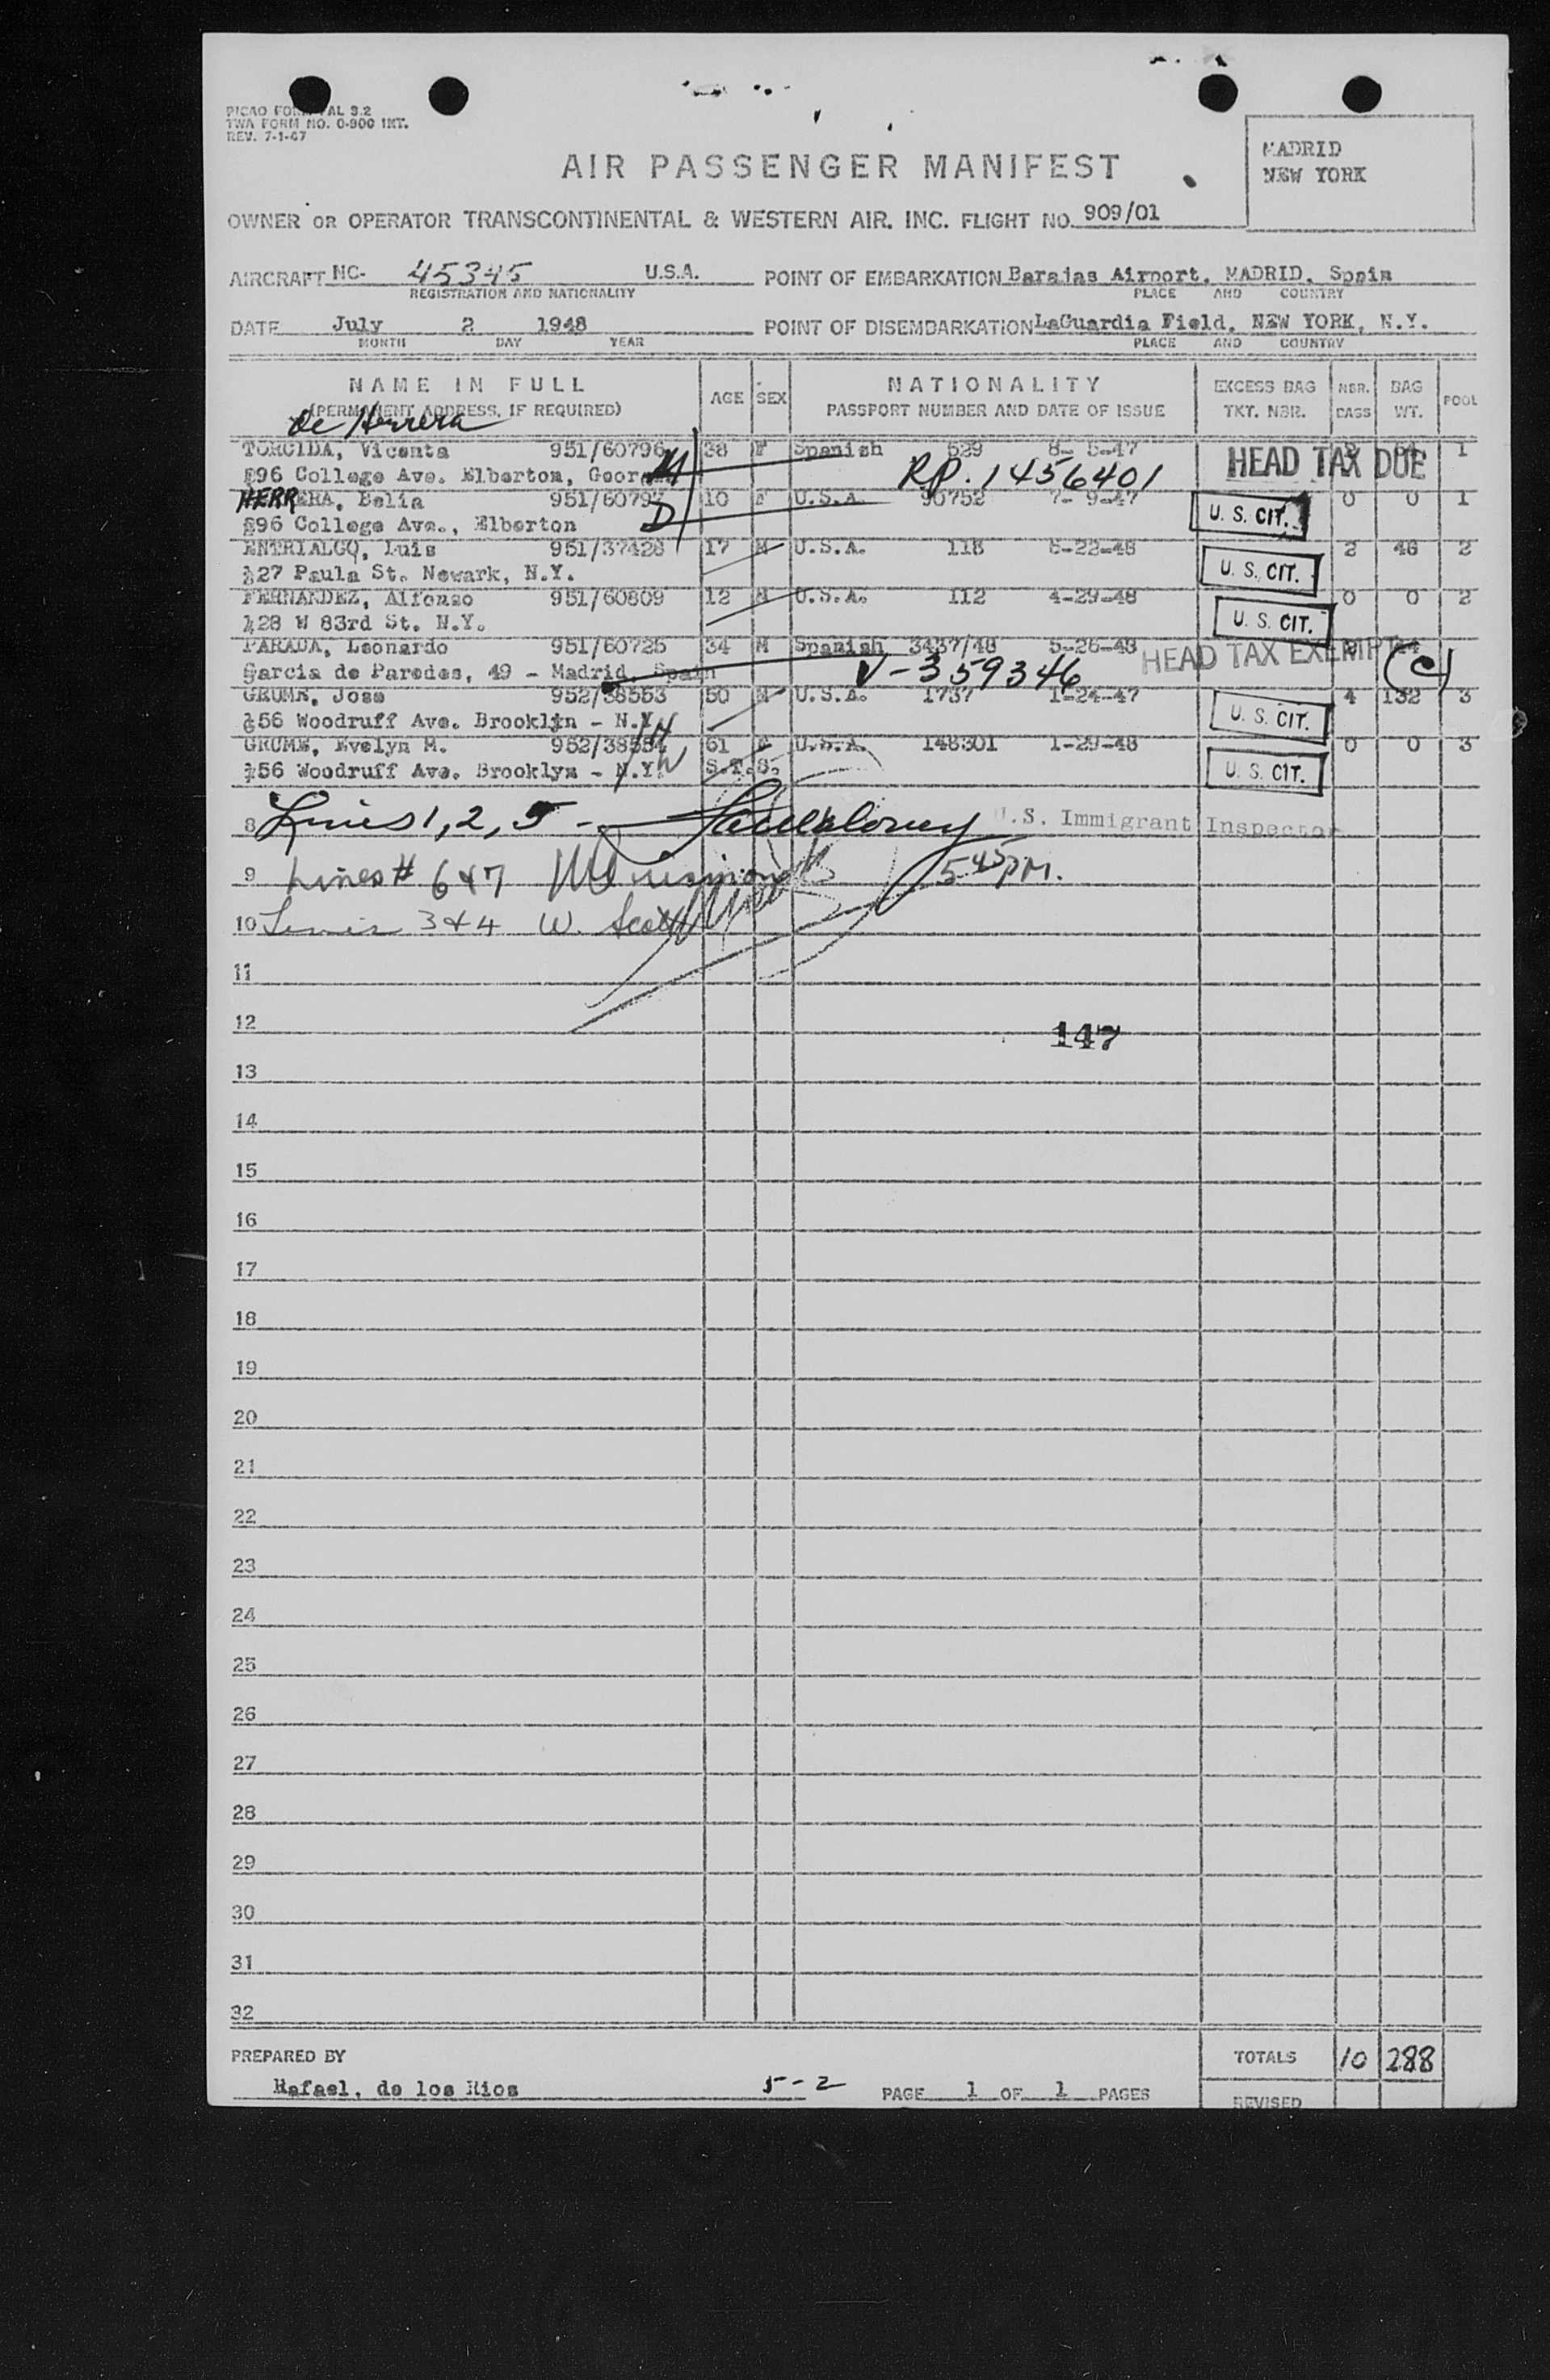 PICAO FORM TAL 3.2
TWA FORM NO. O-900 INT.
REV. 7-1-47
MADRID
NEW YORK
AIR PASSENGER MANIFEST
OWNER OR OPERATOR TRANSCONTINENTAL & WESTERN AIR. INC. FLIGHT NO. 909/01
AIRCRAFT NC- 45345 U.S.A. POINT OF EMBARKATION Barajas Airport, MADRID, Spain
REGISTRATION AND NATIONALITY PLACE AND COUNTRY
DATE July 2 1948 POINT OF DISEMBARKATION LaGuardia Field, NEW YORK, N.Y.
MONTH DAY YEAR PLACE AND COUNTRY
NAME IN FULL AGE SEX NATIONALITY EXCESS BAG NBR. BAG POOL
(PERMANENT ADDRESS, IF REQUIRED) PASSPORT NUMBER AND DATE OF ISSUE TKT. NBR. BAGS WT.
de Herrera
TORCIDA, Vicenta 951/60796 38 F Spanish 529 8- 5-47 HEAD TAX DUE 1
896 College Ave. Elberton, Geor M RP. 1456401
HERRERA, Belia 951/60797 10 F U.S.A. 90752 7- 9-47 U. S. CIT. 0 0 1
896 College Ave., Elberton D
ENTRIALGO, Luis 951/37428 17 M U.S.A. 118 5-22-48 U. S. CIT. 2 46 2
27 Paula St. Newark, N.Y.
FERNANDEZ, Alfonso 951/60809 12 M U.S.A. 112 4-29-48 U. S. CIT. 0 0 2
28 W 83rd St. N.Y.
PARADA, Leonardo 951/60725 34 M Spanish 3437/48 5-26-48 HEAD TAX EXEMPT
Garcia de Paredes, 49 - Madrid, Spain V-359346 (C)
GRUMM, Jose 952/38553 50 M U.S.A. 1737 1-24-47 U. S. CIT. 4 132 3
656 Woodruff Ave. Brooklyn - N.Y. H
GRUMM, Evelyn M. 952/38554 61 F U.S.A. 148301 1-29-48 U. S. CIT. 0 0 3
756 Woodruff Ave. Brooklyn - N.Y. W S.T.S.
8 Lines 1, 2, 5 - U.S. Immigrant Inspector
9 Lines # 6 & 7 5 45 PM.
10 Lines 3 & 4 W. Scott
11
12
147
13
14
15
16
17
18
19
20
21
22
23
24
25
26
27
28
29
30
31
32
PREPARED BY TOTALS 10 288
Rafael, de los Rios 5-2 PAGE 1 OF 1 PAGES
REVISED